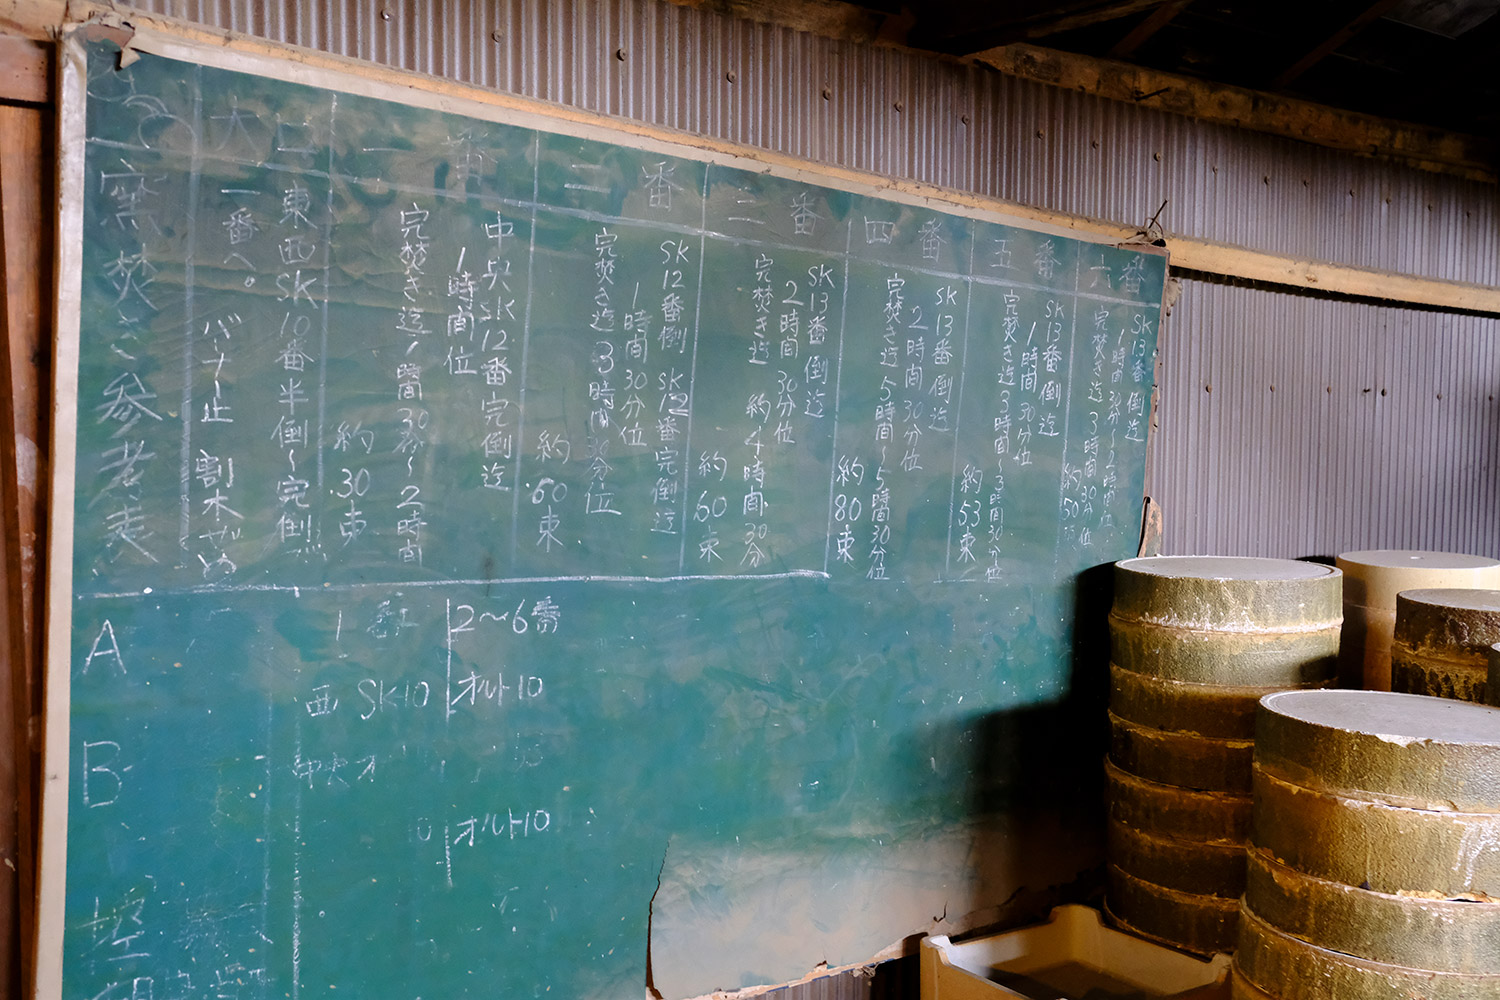 窯焚き参考表
大口
一番へ。
バーナー止 割木ぜめ
東西SK10番半倒〜完倒
約30束
一番
中央SK12番完倒迄
1時間位
完焚き迄1時間30分〜2時間
約60束
二番
SK12番倒 SK12番完倒迄
1時間30分位
完焚き迄3時間30分位
約60束
三番
SK13番倒迄
2時間30分位
完焚き迄 約4時間30分
約80束
四番
SK13番倒迄
2時間30分位
完焚き迄5時間〜5時間30分位
約53束
五番
SK13番倒迄
1時間30分位
完焚き迄3時間〜3時間30分位
約50
六番
SK13番倒迄
1時間30分〜2時間位
完焚き迄3時間30分位
A
1番
2〜6番
西 SK10
オルト10
B
中央オ
オルト10